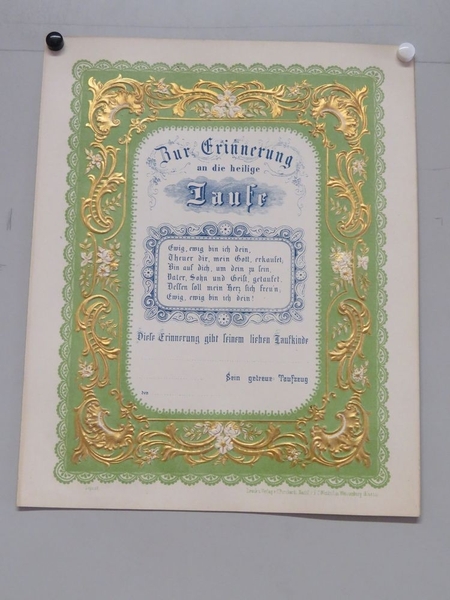 Zur Erinnerung
an die heilige
Taufe
Ewig, ewig bin ich dein,
Theuer dir, mein Gott, erkaufet,
Bin auf dich, um dein zu sein,
Vater, Sohn und Geist, getaufet.
Dessen soll mein Herz sich freu'n,
Ewig, ewig bin ich dein!
Diese Erinnerung gibt seinem lieben Taufkinde
Sein getreuer Taufzeug